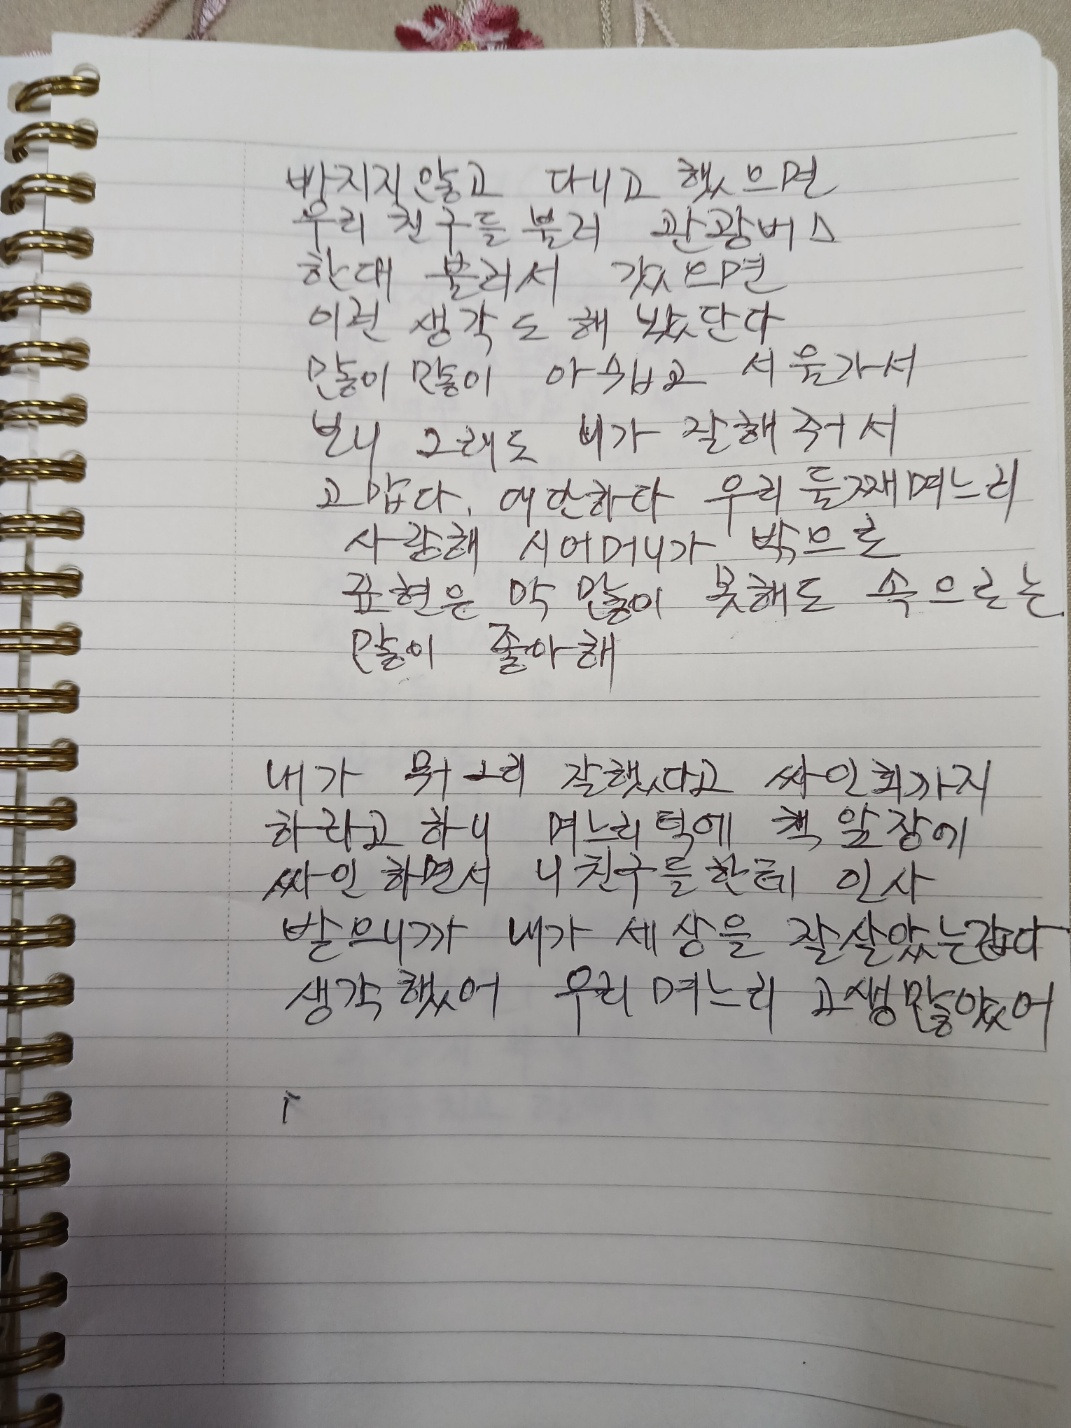 빠지지않고 다니고 했으면
우리 친구들 불러 관광버스
한대 불러서 갔으면
이런 생각도 해 봤단다
많이 많이 아쉽고 서울가서
보니 그래도 니가 잘해 주어서
고맙다. 애란하다 우리 둘째며느리
사랑해 시어머니가 밖으로
표현은 막 많이 못해도 속으로는
많이 좋아해
내가 뭐 그리 잘했다고 싸인회가지
하라고 하니 며느리 턱에 책 앞장에
싸인 하면서 니 친구들한테 인사
받으니까 내가 세상을 잘살았는갑다
생각했어 우리 며느리 고생많았어